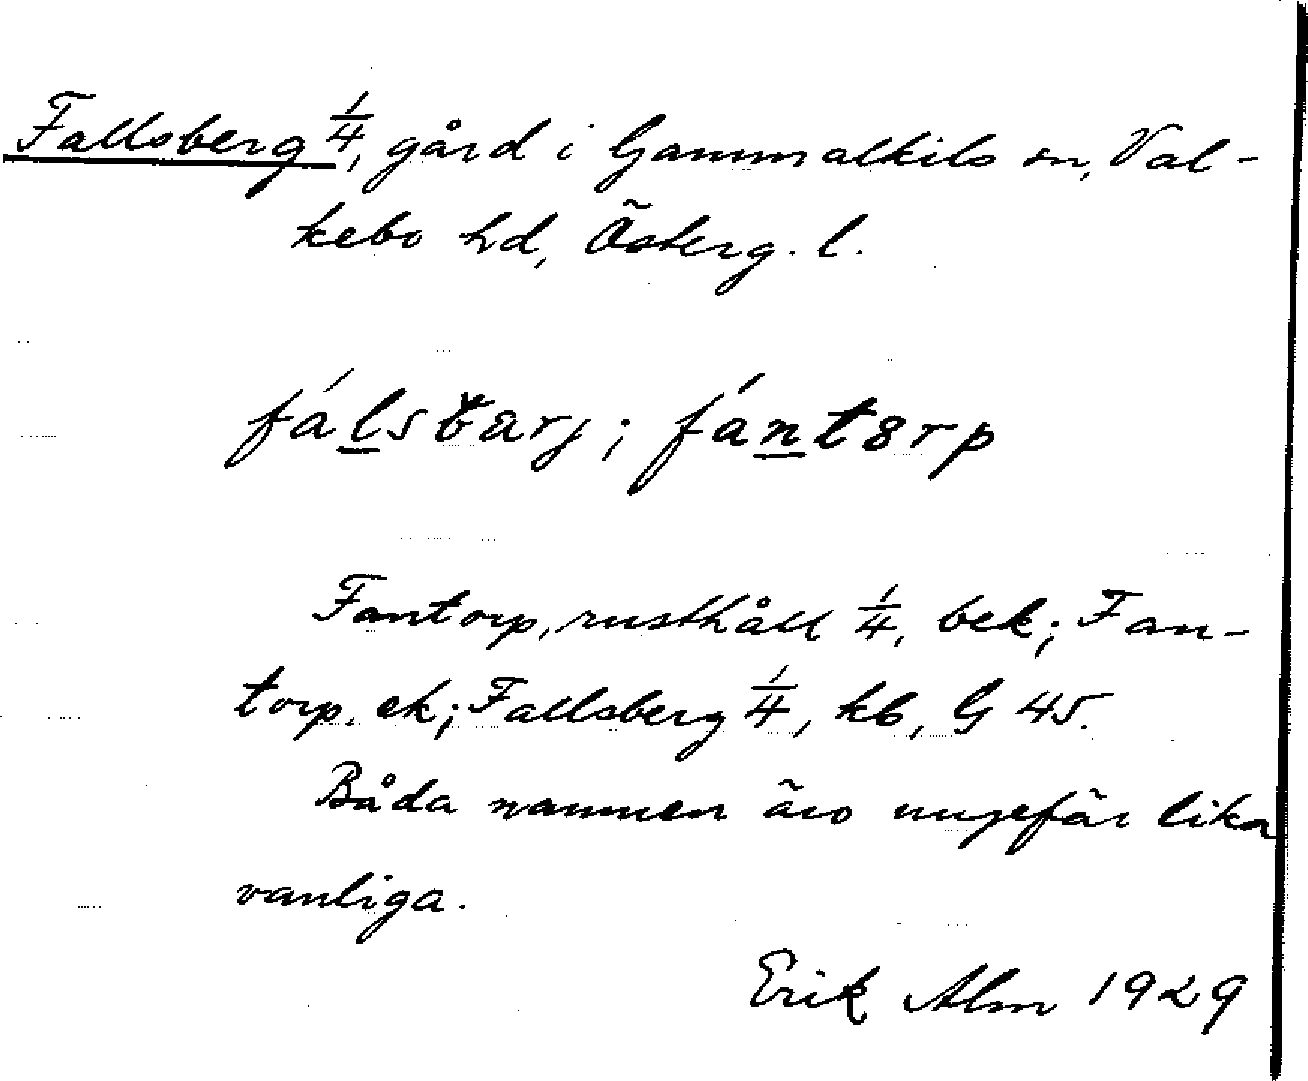 Fallsberg 1/4, gård i Gammalkils sn, Val-
kebo hd, Österg. l.
fálsbarj; fántɵrp
Fantorp, rusthåll 1/4, bek; Fan-
torp, ek; Fallsberg 1/4, kb, G 45.
Båda namnen äro ungefär lika
vanliga.
Erik Alm 1929